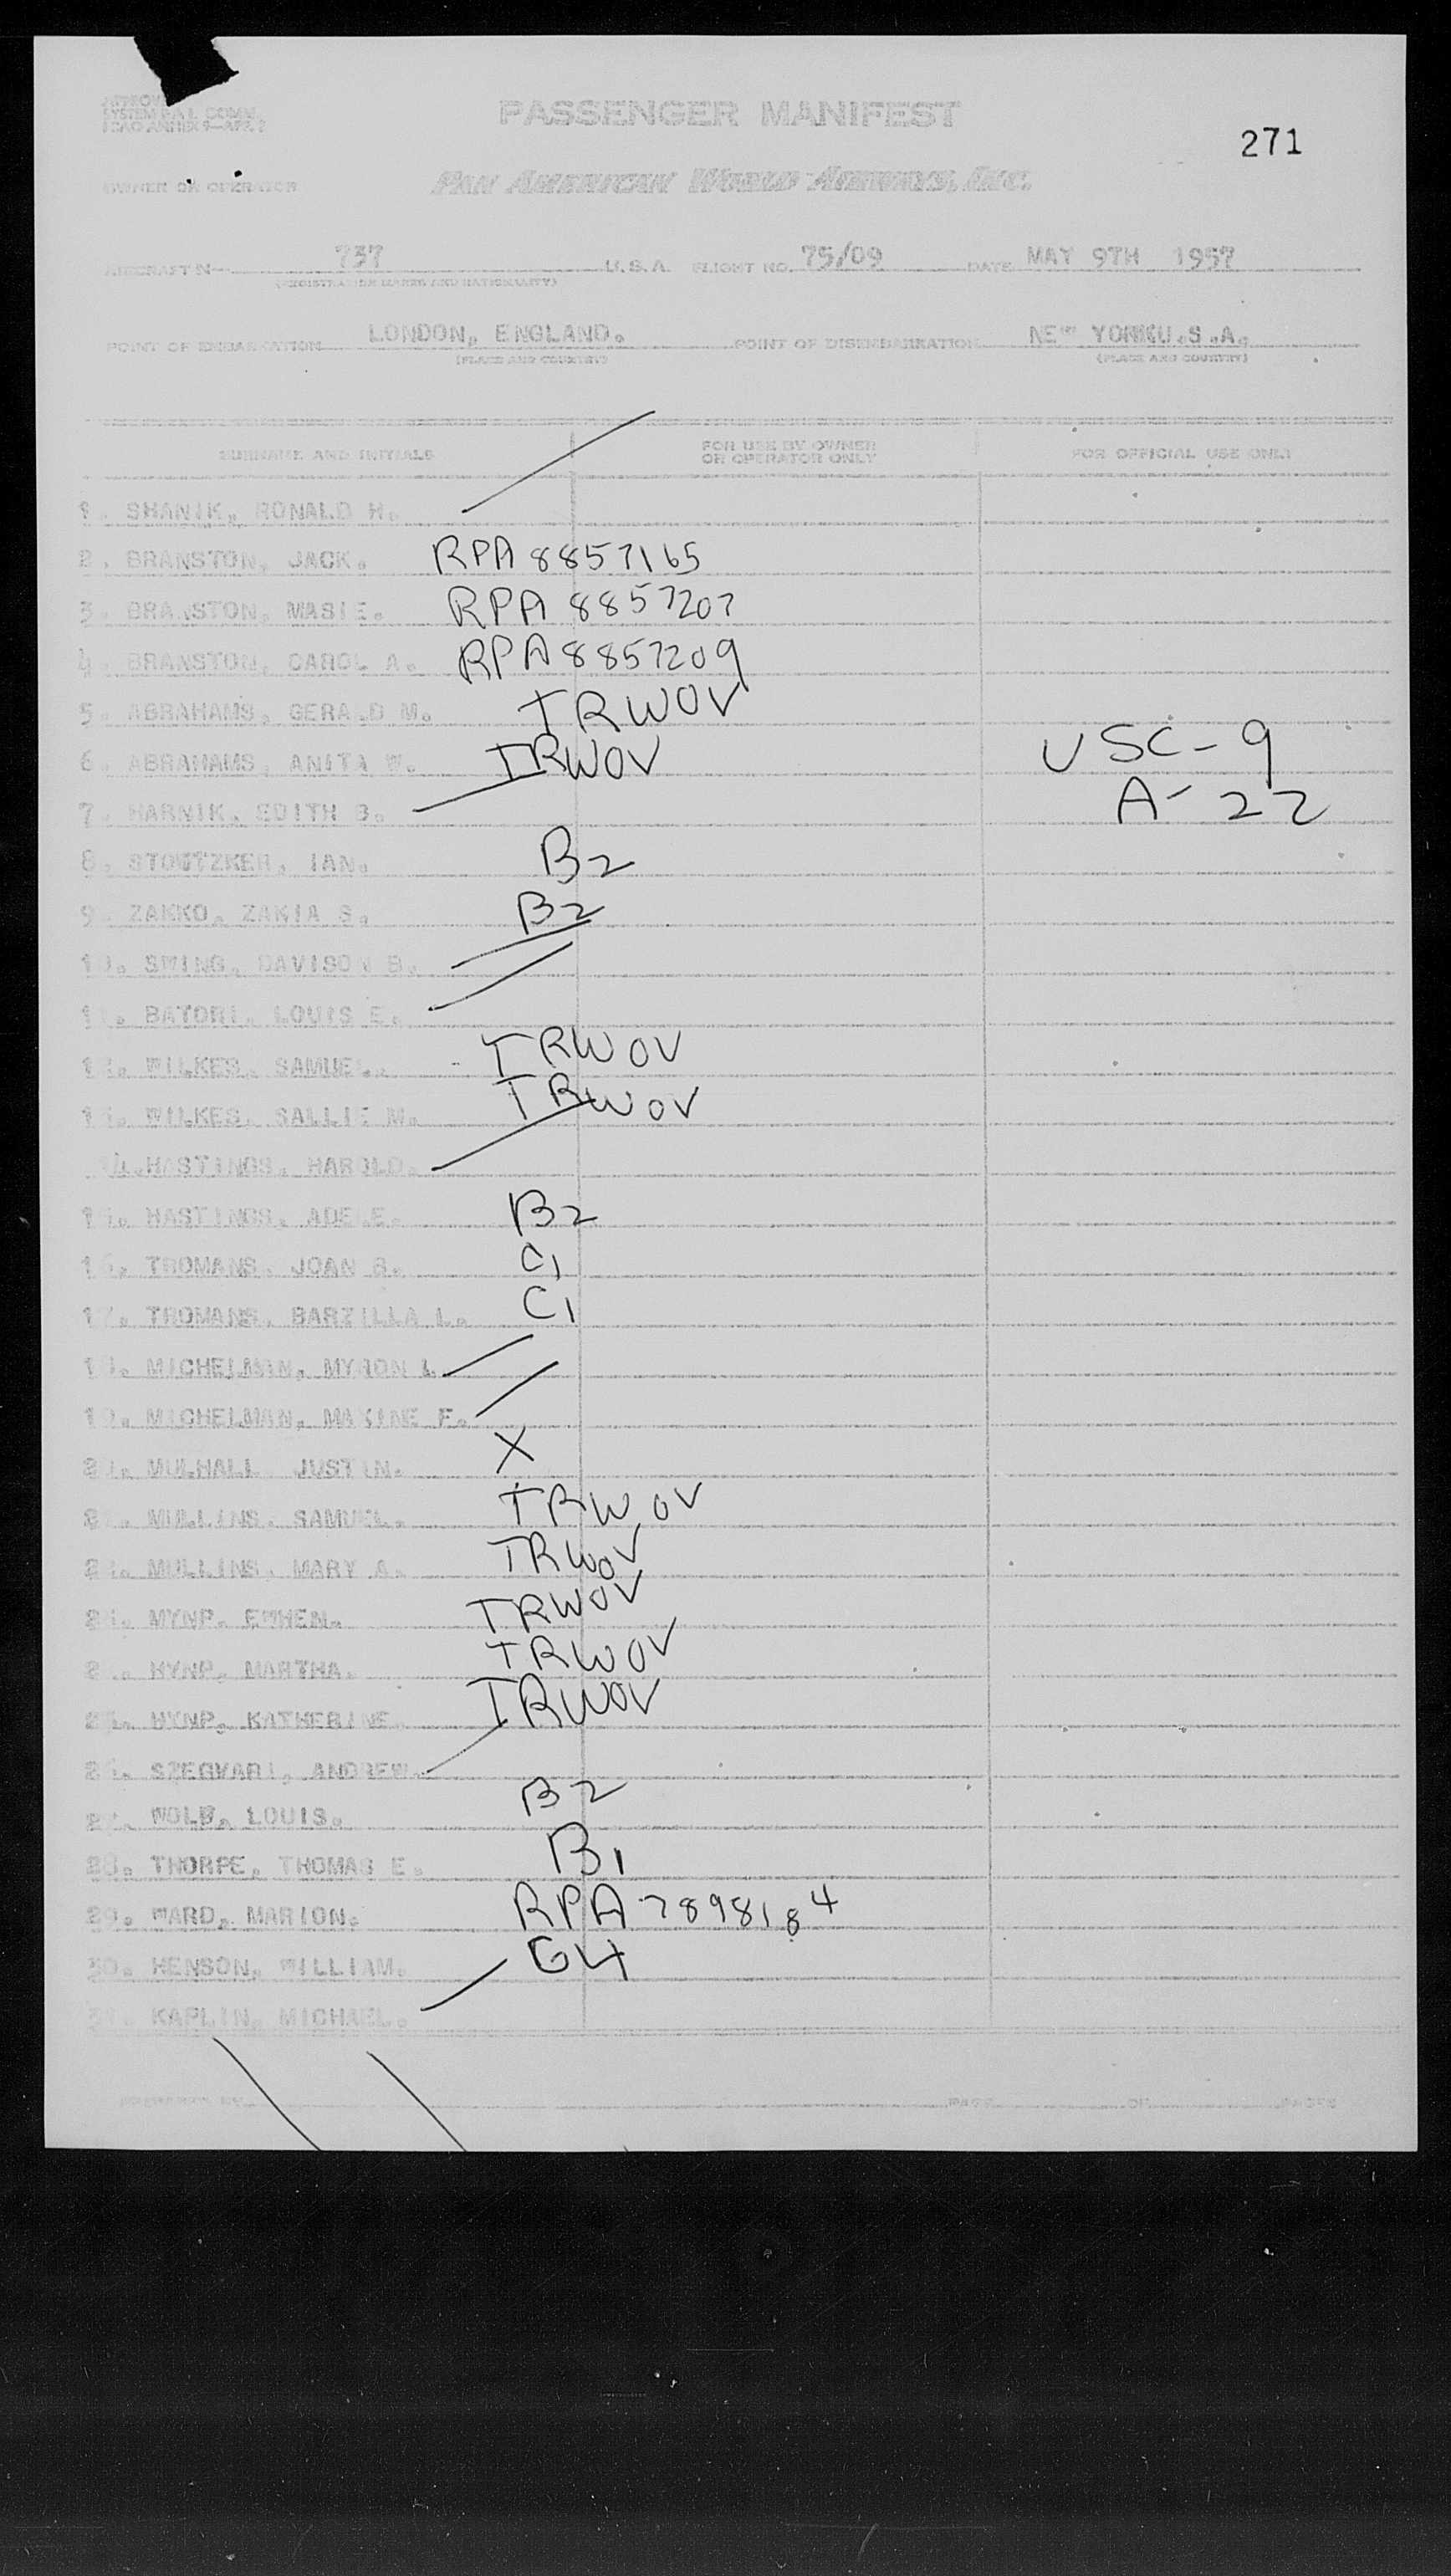 PASSENGER MANIFEST
271
SYSTEM F.A.L. COMM.
ICAO ANNEX 9—APP. 2
OWNER OR OPERATOR PAN AMERICAN WORLD AIRWAYS, INC.
AIRCRAFT N— 737 U.S.A. FLIGHT NO. 75/09 DATE MAY 9TH 1957
(REGISTRATION MARKS AND NATIONALITY)
POINT OF EMBARKATION LONDON, ENGLAND. POINT OF DISEMBARKATION NEW YORKU.S.A.
(PLACE AND COUNTRY) (PLACE AND COUNTRY)
SURNAME AND INITIALS FOR USE BY OWNER OR OPERATOR ONLY FOR OFFICIAL USE ONLY
1. SHANIK, RONALD H.
2. BRANSTON, JACK. RPA 8857165
3. BRANSTON, MASIE. RPA 8857207
4. BRANSTON, CAROL A. RPA 8857209
5. ABRAHAMS, GERALD M. TRWOV
6. ABRAHAMS, ANITA W. TRWOV USC-9
7. HARNIK, EDITH B. A-22
8. STOUTZKER, IAN. B2
9. ZAKKO, ZAKIA S. B2
10. SWING, DAVISON B.
11. BATORI, LOUIS E.
12. WILKES, SAMUEL. TRWOV
13. WILKES, SALLIE M. TRWOV
14. HASTINGS, HAROLD.
15. HASTINGS, ADELE. B2
16. TROMANS, JOAN S. C1
17. TROMANS, BARZILLA L. C1
18. MICHELMAN, MYRON L
19. MICHELMAN, MAXINE F.
20. MULHALL JUSTIN. X
21. MULLINS, SAMUEL. TRWOV
22. MULLINS, MARY A. TRWOV
23. MYNP, EWHEN. TRWOV
24. HYNP, MARTHA. TRWOV
25. HYNP, KATHERINE. TRWOV
26. SZEGVARI, ANDREW.
27. WOLB, LOUIS. B2
28. THORPE, THOMAS E. B1
29. WARD, MARION. RPA 7898184
30. HENSON, WILLIAM. G4
31. KAPLIN, MICHAEL.
PREPARED BY PAGE OF PAGES